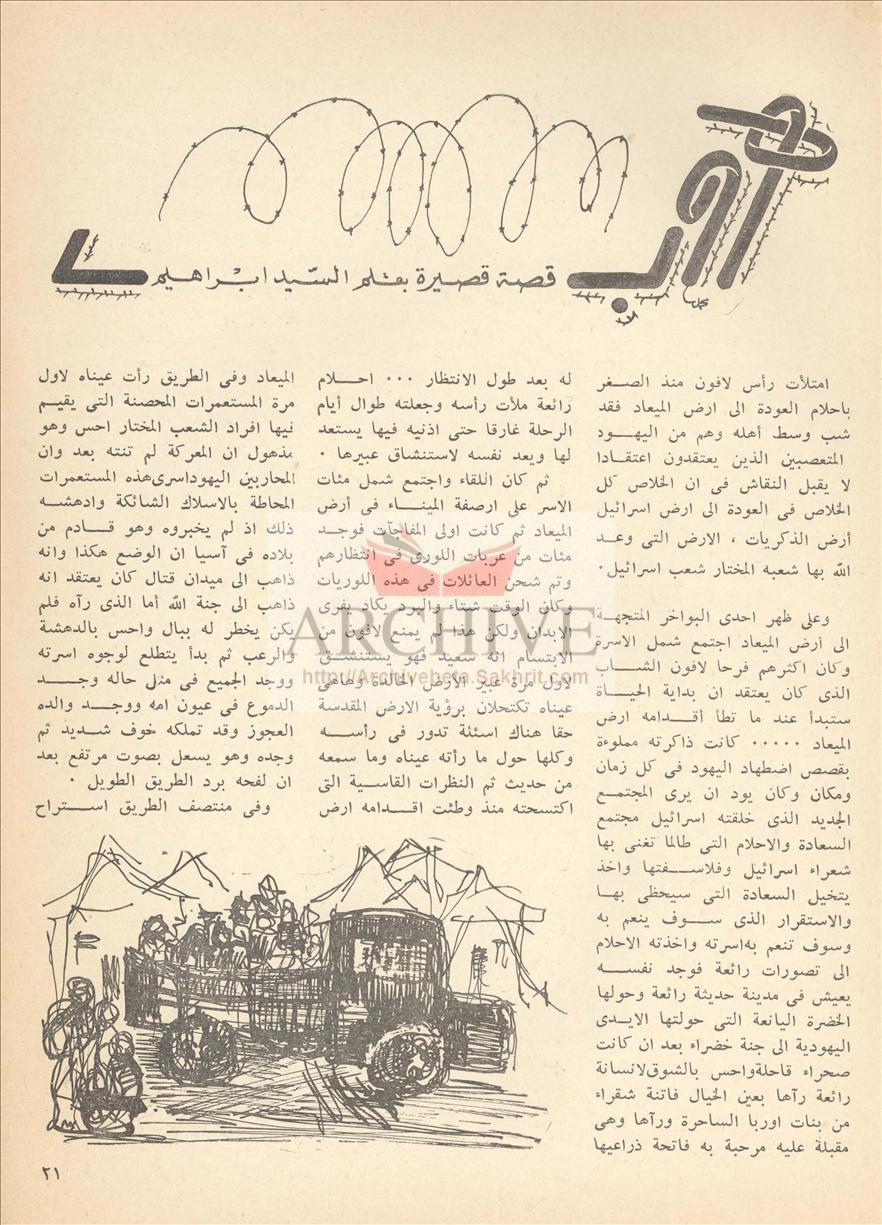 هروب
قصة قصيرة بقلم السيد ابراهيم
امتلأت رأس لافون منذ الصغر
باحلام العودة الى ارض الميعاد فقد
شب وسط أهله وهم من اليهود
المتعصبين الذين يعتقدون اعتقادا
لا يقبل النقاش فى ان الخلاص كل
الخلاص فى العودة الى ارض اسرائيل
أرض الذكريات ، الارض التى وعد
الله بها شعبه المختار شعب اسرائيل ·
وعلى ظهر احدى البواخر المتجهة
الى أرض الميعاد اجتمع شمل الاسرة
وكان اكثرهم فرحا لافون الشاب
الذى كان يعتقد ان بداية الحياة
ستبدأ عند ما تطأ أقدامه ارض
الميعاد ····· كانت ذاكرته مملوءة
بقصص اضطهاد اليهود فى كل زمان
ومكان وكان يود ان يرى المجتمع
الجديد الذى خلقته اسرائيل مجتمع
السعادة والاحلام التى طالما تغنى بها
شعراء اسرائيل وفلاسفتها واخذ
يتخيل السعادة التى سيحظى بها
والاستقرار الذى سوف ينعم به
وسوف تنعم به اسرته واخذته الاحلام
الى تصورات رائعة فوجد نفسه
يعيش فى مدينة حديثة رائعة وحولها
الخضرة اليانعة التى حولتها الايدى
اليهودية الى جنة خضراء بعد ان كانت
صحراء قاحلة واحس بالشوق لانسانة
رائعة رآها بعين الخيال فاتنة شقراء
من بنات اوربا الساحرة ورآها وهى
مقبلة عليه مرحبة به فاتحة ذراعيها
له بعد طول الانتظار ··· احلام
رائعة ملأت رأسه وجعلته طوال أيام
الرحلة غارقا حتى اذنيه فيها يستعد
لها ويعد نفسه لاستنشاق عبيرها ·
ثم كان اللقاء واجتمع شمل مئات
الاسر على ارصفة الميناء فى أرض
الميعاد ثم كانت اولى المفاجآت فوجد
مئات من عربات اللورى فى انتظارهم
وتم شحن العائلات فى هذه اللوريات
وكان الوقت شتاء والبرد يكاد يفرى
الابدان ولكن هذا لم يمنع لافون من
الابتسام انه سعيد فهو يستنشق
لاول مرة عبير الارض الخالدة وهاهى
عيناه تكتحلان برؤية الارض المقدسة
حقا هناك اسئلة تدور فى رأسه
وكلها حول ما رأته عيناه وما سمعه
من حديث ثم النظرات القاسية التى
اكتسحته منذ وطئت اقدامه ارض
الميعاد وفى الطريق رأت عيناه لاول
مرة المستعمرات المحصنة التى يقيم
فيها افراد الشعب المختار احس وهو
مذهول ان المعركة لم تنته بعد وان
المحاربين اليهود اسرى هذه المستعمرات
المحاطة بالاسلاك الشائكة وادهشه
ذلك اذ لم يخبروه وهو قادم من
بلاده فى آسيا ان الوضع هكذا وانه
ذاهب الى ميدان قتال كان يعتقد انه
ذاهب الى جنة الله أما الذى رآه فلم
يكن يخطر له ببال واحس بالدهشة
والرعب ثم بدأ يتطلع لوجوه اسرته
ووجد الجميع فى مثل حاله وجد
الدموع فى عيون امه ووجد والده
العجوز وقد تملكه خوف شديد ثم
وجده وهو يسعل بصوت مرتفع بعد
ان لفحه برد الطريق الطويل ·
وفى منتصف الطريق استراح
ARCHIVE
http://Archivebeta.Sakhrit.com
٢١